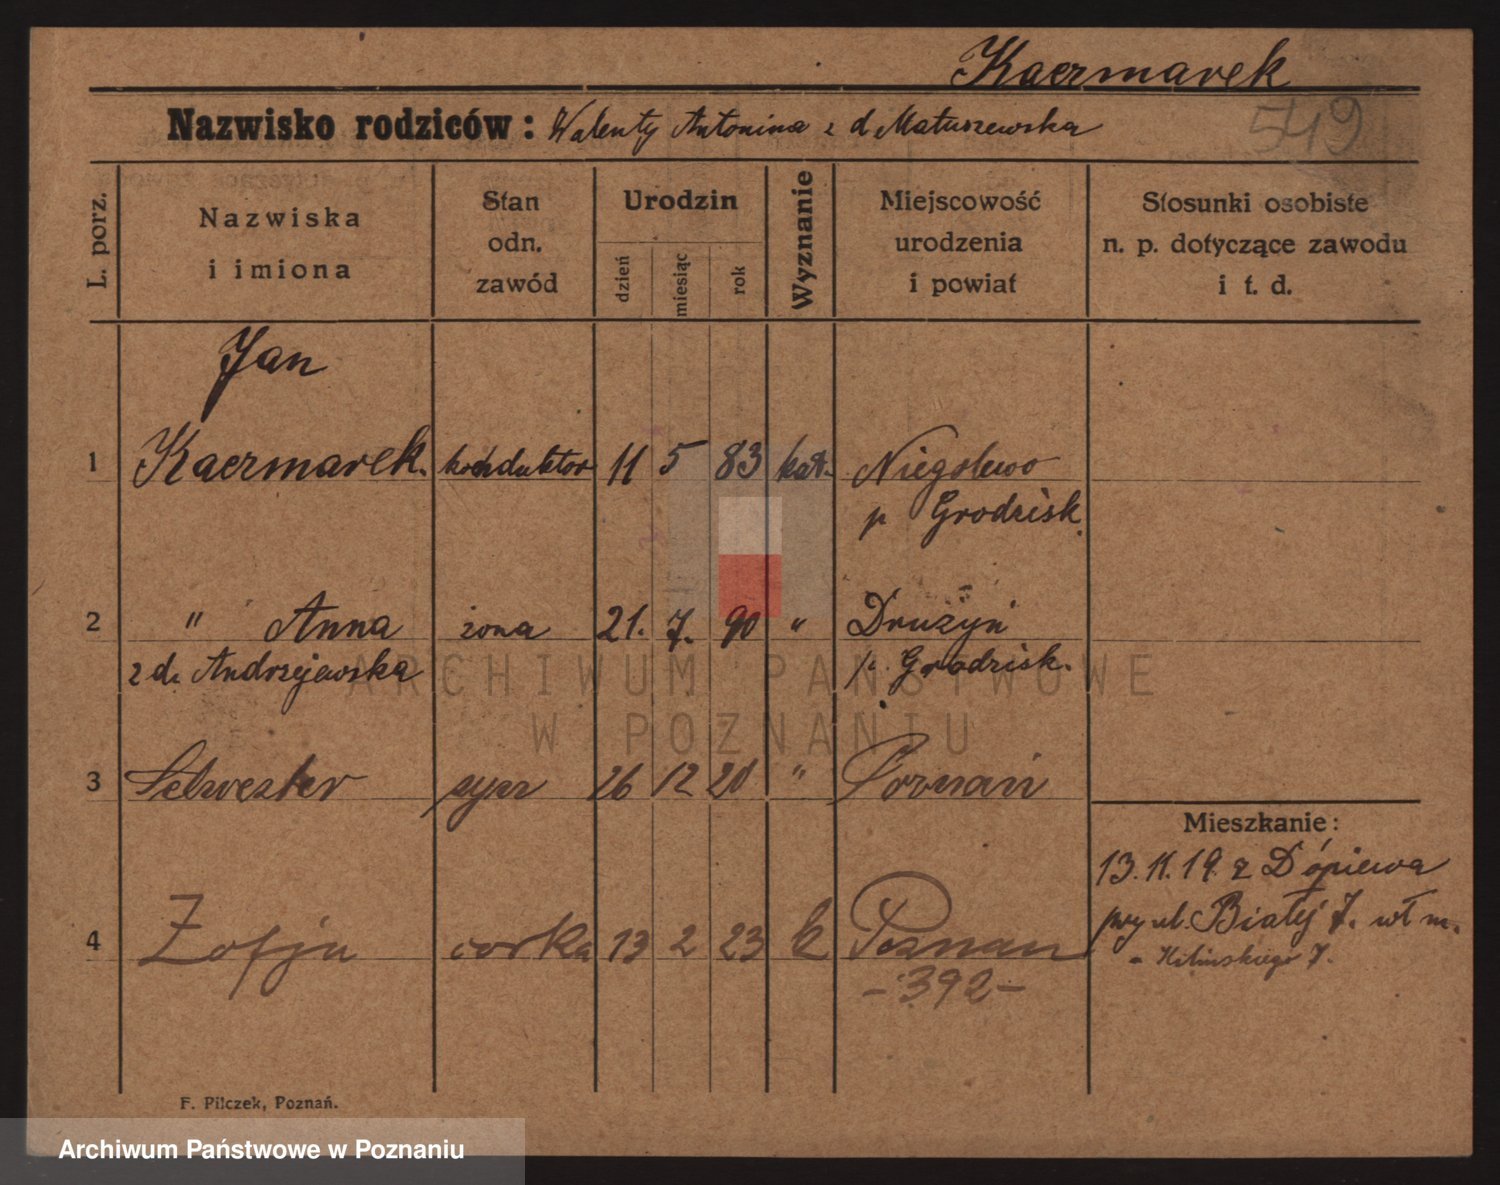 Kaczmarek
549
Nazwisko rodziców: Walenty Antonina z d Matuszewska
L. porz.
Nazwiska
i imiona
Stan
odn.
zawód
Urodzin
dzień
miesiąc
rok
Wyznanie
Miejscowość
urodzenia
i powiat
Stosunki osobiste
n. p. dotyczące zawodu
i t. d.
Jan
1 Kaczmarek. konduktor 11 5 83 kat. Niegolewo
p Grodzisk.
2 " Anna żona 21. 7. 90 " Drużyń
z d. Andrzejewska p. Grodzisk.
3 Sylwester syn 26 12 20 " Poznań
Mieszkanie:
13.11.19. z Dopiewa
przy ul. Białej 7. wł m.
4 Zofja corka 13 2 23 k Poznan
- Kilińskiego 7.
-392-
F. Pilczek, Poznań.
ARCHIWUM PAŃSTWOWE
W POZNANIU
Archiwum Państwowe w Poznaniu